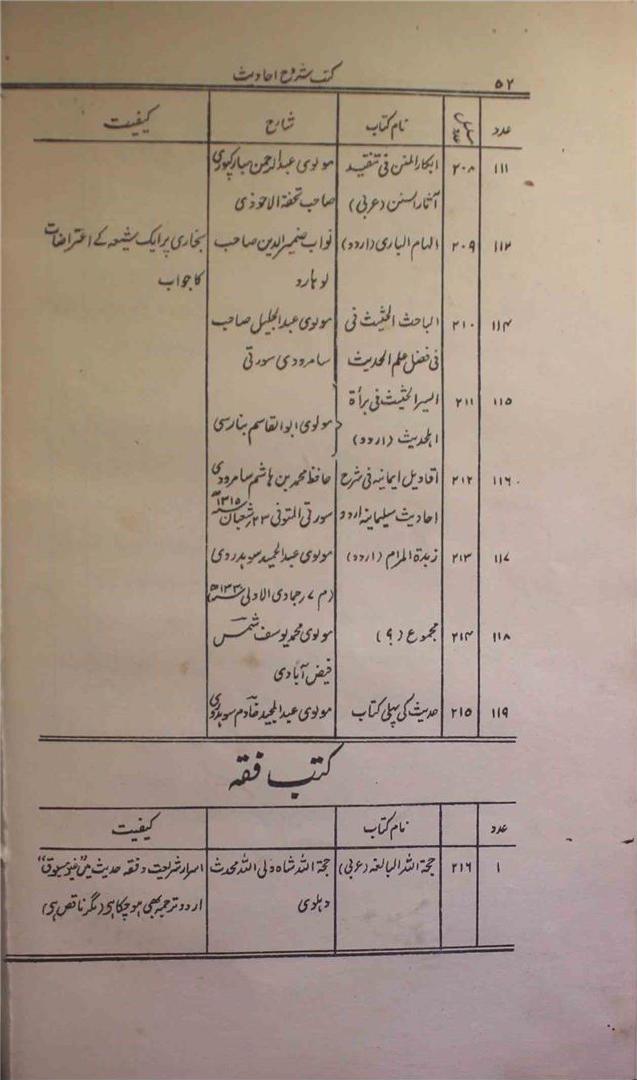 ۵۲ کتب شروح احادیث
عدد مسلسل عدد نام کتاب شارح کیفیت
۱۱۱ ۲۰۸ ابکار المنن فی تنقید مولوی عبدالرحمن مبارکپوری
آثار السنن (عربی) صاحب تحفۃ الاحوذی
۱۱۲ ۲۰۹ الہام الباری (اردو) نواب ضمیرالدین صاحب بخاری پر ایک شیعہ کے اعتراضات
لوہارو کا جواب
۱۱۴ ۲۱۰ الباحث الحثیث فی مولوی عبدالجلیل صاحب
فی فضل علم الحدیث سامرودی سورتی
۱۱۵ ۲۱۱ السیر الحثیث فی برأۃ
اہلحدیث (اردو) مولوی ابوالقاسم بنارسی
۱۱۶ ۲۱۲ اقاویل ایمانیہ فی شرح حافظ محمد بن ہاشم سامرودی
احادیث سلیمانیہ اردو سورتی المتوفی ۲۳ شعبان ۱۳۱۵ھ
۱۱۷ ۲۱۳ زبدۃ المرام (اردو) مولوی عبدالحمید سوہدروی
(م ۷ جمادی الاولی ۱۳۳۰ھ)
۱۱۸ ۲۱۴ مجموع (۹) مولوی محمد یوسف شمس
فیض آبادی
۱۱۹ ۲۱۵ حدیث کی پہلی کتاب مولوی عبدالمجید خادم سوہدروی
کتب فقہ
عدد نام کتاب کیفیت
۱ ۲۱۶ حجۃ اللہ البالغہ (عربی) حجۃ اللہ شاہ ولی اللہ محدث اسرار شریعت و فقہ حدیث میں "غیر مسبوق"
دہلوی اردو ترجمہ بھی ہو چکا ہی (مگر ناقص ہی)